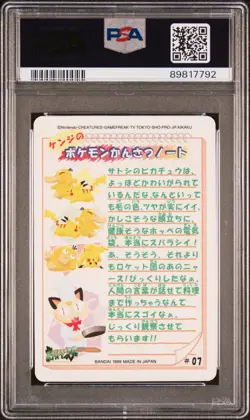 PSA
89817792
©Nintendo・CREATURES・GAMEFREAK・TV TOKYO・SHO-PRO・JR KIKAKU
ケンジの
ポケモンかんさつノート
サトシのピカチュウは、
よっぽどかわいがられて
いるんだな。なんといって
も毛の色、ツヤが実にイイ。
かしこそうな顔立ちに、
健康そうなホッペの電気
袋、本当にスバラシイ！
あ、そうそう、それより
もロケット団のあのニャ
ース！びっくりしたなぁ。
人間の言葉が話せて料理
まで作っちゃうなんて
本当にスゴイなぁ。
じっくり観察させて
もらいます!!
BANDAI 1999 MADE IN JAPAN
# 07